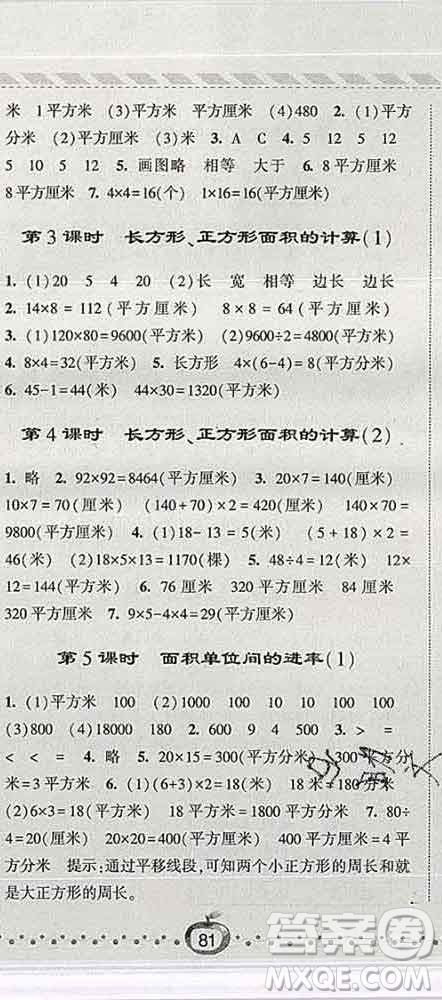 米 1平方米 (3)平方米 平方厘米 (4)480 2. (1)平方
分米 (2)平方米 (3)米 3. A C 4. 5 12 5 12
5 10 5 12 5. 画图略 相等 大于 6. 8平方厘米
8平方厘米 7. 4×4=16(个) 1×16=16(平方厘米)
第3课时 长方形、正方形面积的计算(1)
1. (1)20 5 4 20 (2)长 宽 相等 边长 边长
2. 14×8=112(平方厘米) 8×8=64(平方厘米)
3. (1)120×80=9600(平方米) (2)9600÷2=4800(平方米)
4. 8×4=32(平方米) 5. 长方形 4×(6-4)=8(平方分米)
6. 45-1=44(米) 44×30=1320(平方米)
第4课时 长方形、正方形面积的计算(2)
1. 略 2. 92×92=8464(平方厘米) 3. 20×7=140(厘米)
10×7=70(厘米) (140+70)×2=420(厘米) 140×70=
9800(平方厘米) 4. (1)18-13=5(米) (5+18)×2=
46(米) (2)18×5×13=1170(棵) 5. 48÷4=12(米) 12×
12=144(平方米) 6. 76厘米 320平方厘米 84厘米
320平方厘米 7. 9×5-4×4=29(平方厘米)
第5课时 面积单位间的进率(1)
1. (1)平方米 100 (2)1000 100 10 10 100 100
(3)800 (4)18000 180 2. 600 9 4 500 3. > =
< < = 4. 略 5. 20×15=300(平方分米) 300平方分
米=3平方米 6. (1)(6+3)×2=18(米) 18米=180分米
(2)6×3=18(平方米) 18平方米=1800平方分米 7. 80÷
4=20(厘米) 20×20=400(平方厘米) 400平方厘米=4平
方分米 提示：通过平移线段，可知两个小正方形的周长和就
是大正方形的周长。
81
答案卷
MXQE.COM